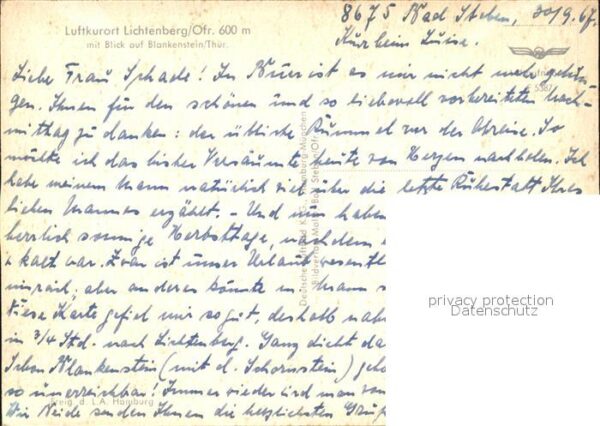 8675 Bad Steben, 30/9.67.
Luftkurort Lichtenberg/Ofr. 600 m
mit Blick auf Blankenstein/Thür.
Kurheim Luise.
Liebe Frau Schade! In ist es mir nicht mehr gelun-
gen. Ihnen für den schönen und so liebevoll vorbereiteten Nach-
mittag zu danken: der übliche Rummel vor der Abreise. So
möchte ich das bisher Versäumte heute von Herzen nachholen. Ich
habe meinem Mann natürlich viel über die letzte Ruhestatt Ihres
lieben Mannes erzählt. - Und nun haben
herrlich sonnige Herbsttage, nachdem
kalt war. Zwar ist unser Urlaub
aber an anderes könnte mein Mann
Diese Karte gefiel mir so gut, deshalb
in 3/4 Std. nach Lichtenberg. Ganz dicht
schon Blankenstein (mit d. Schornstein)
so unerreichbar! Immer wieder wird man von
Wir Beide senden Ihnen die herzlichsten
Deutsche Luftbild K.G., Hamburg-München
Bildverlag Bad Steben/Ofr.
Freig. d. L.A. Hamburg
privacy protection
Datenschutz